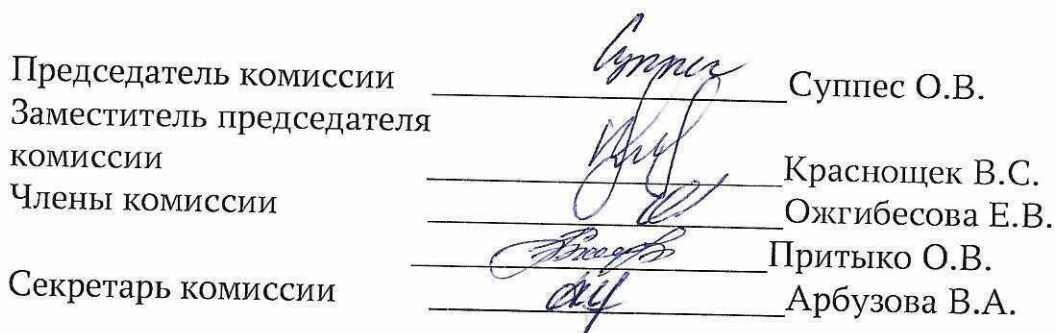 Председатель комиссии Суппес Суппес О.В.
Заместитель председателя
комиссии Краснощек В.С.
Члены комиссии Ожгибесова Е.В.
Притыко О.В.
Секретарь комиссии Арбузова В.А.